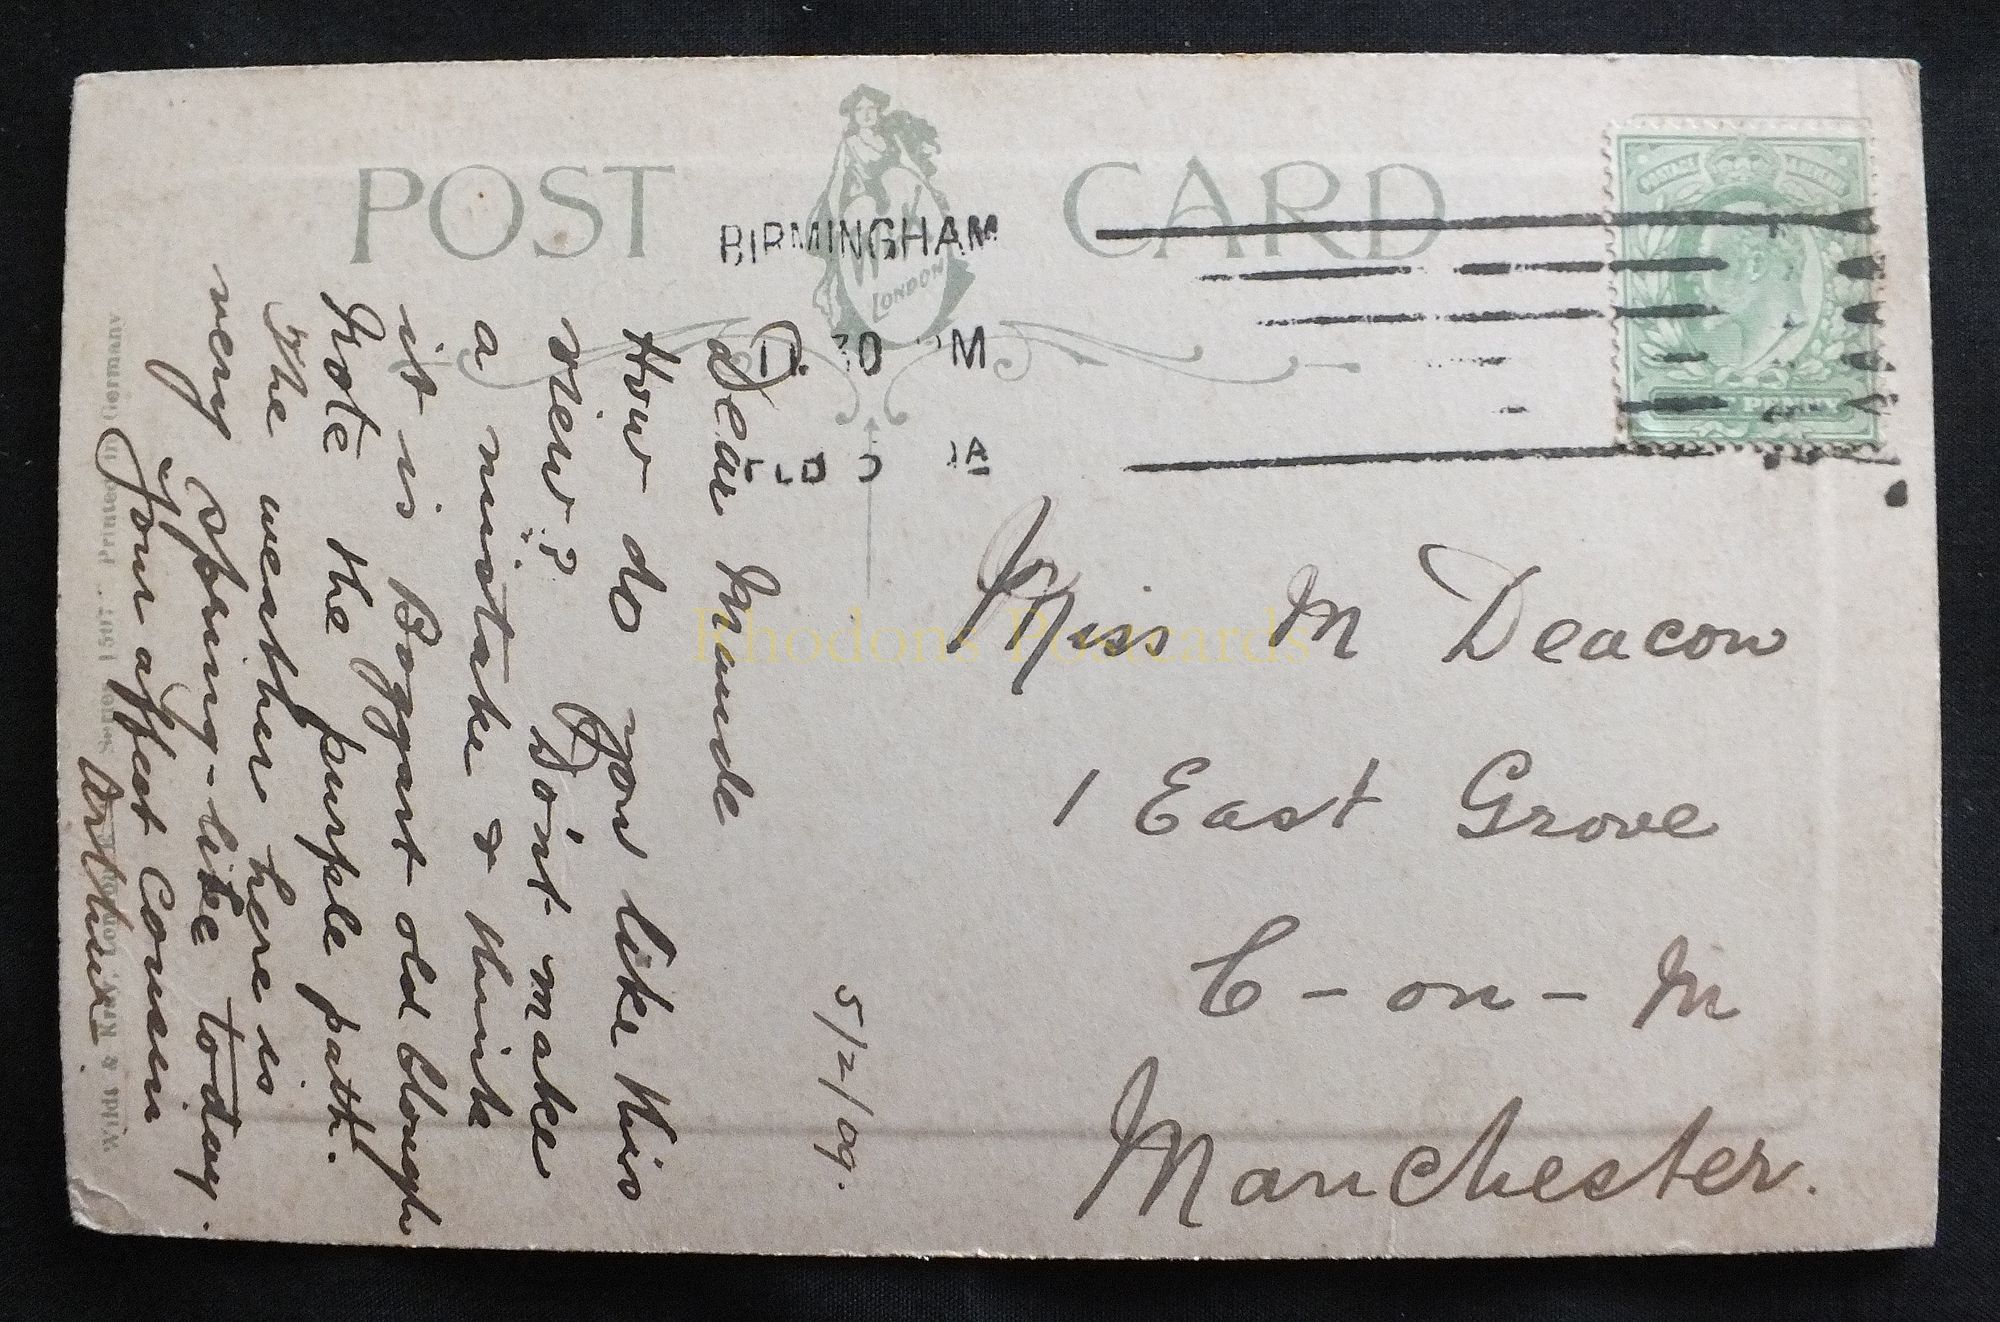 POST CARD
W&K
LONDON
BIRMINGHAM
11.30 PM
FEB 5
POSTAGE & REVENUE
HALF PENNY
Miss M Deacon
1 East Grove
C-on-M
Manchester.
5/2/09.
Dear Maude
How do you like this
view? Don't make
a mistake & think
it is Boggart old Clough
Note the purple path.
The weather here is
very spring-like today.
Your affect Cousin
Arthur
Wildt & Kray, London, E.C. Series 1507. Printed in Germany
Rhodons Postcards